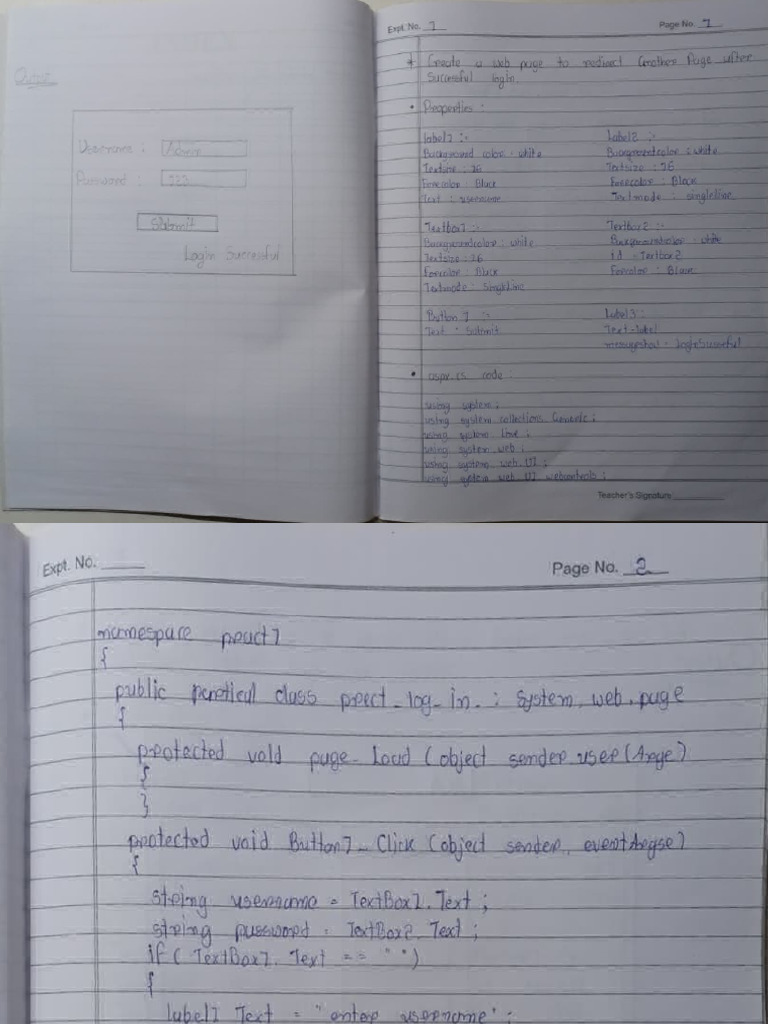 Output
Username : Admin
Password : 123
Submit
Login Successful
Expt. No. 1
Page No. 1
* Create a web page to redirect another Page after
Successful login.
• Properties :
Label1 :-
Background color : white
Textsize : 16
Forecolor : Black
Text : username
Label2 :-
Backgroundcolor : white
Textsize : 16
Forecolor : Black
Textmode : singleline
Textbox1 :-
Backgroundcolor : white
Textsize : 16
Forecolor : Black
Textmode : Singleline
Textbox2 :-
Backgroundcolor : white
id : Textbox2
Forecolor : Black
Button 1 :-
Text : Submit
Label3 :
Text - label
• aspx.cs code :
using system ;
using system collections. Generic ;
using system Linq ;
using system web ;
using system web. UI ;
using system web UI webcontrols ;
Teacher's Signature
Expt. No.
Page No. 2
namespace pract1
{
public parctical class prect_log_in. : System. web. page
{
protected void page_Load (object sender user(Arege)
{
}
protected void Button1_Click (object sender, eventArgse)
{
string username = TextBox1. Text ;
string password = TextBox2. Text ;
if ( TextBox1. Text == " ")
{
label1 Text = "enter username" ;